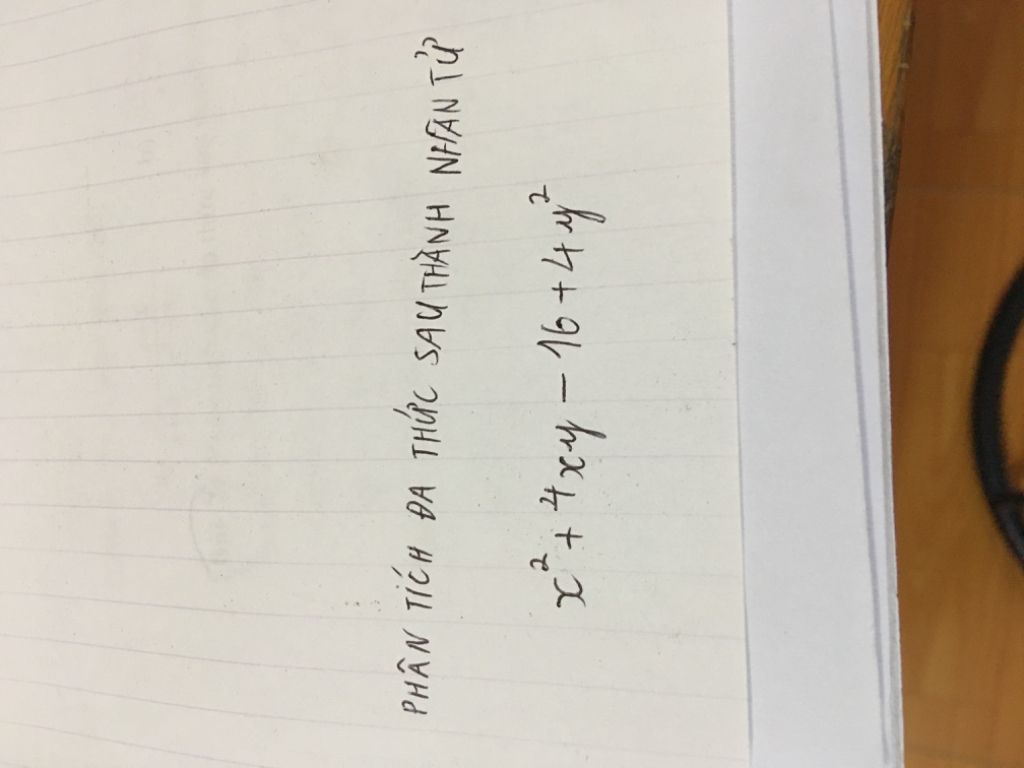 PHÂN TÍCH ĐA THỨC SAU THÀNH NHÂN TỬ
x² + 4xy - 16 + 4y²